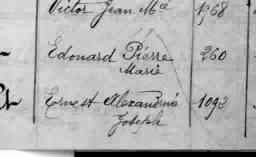 Victor Jean Mce 1968
Edouard Pierre 260
Marie
Ernest Alexandre 1093
Joseph